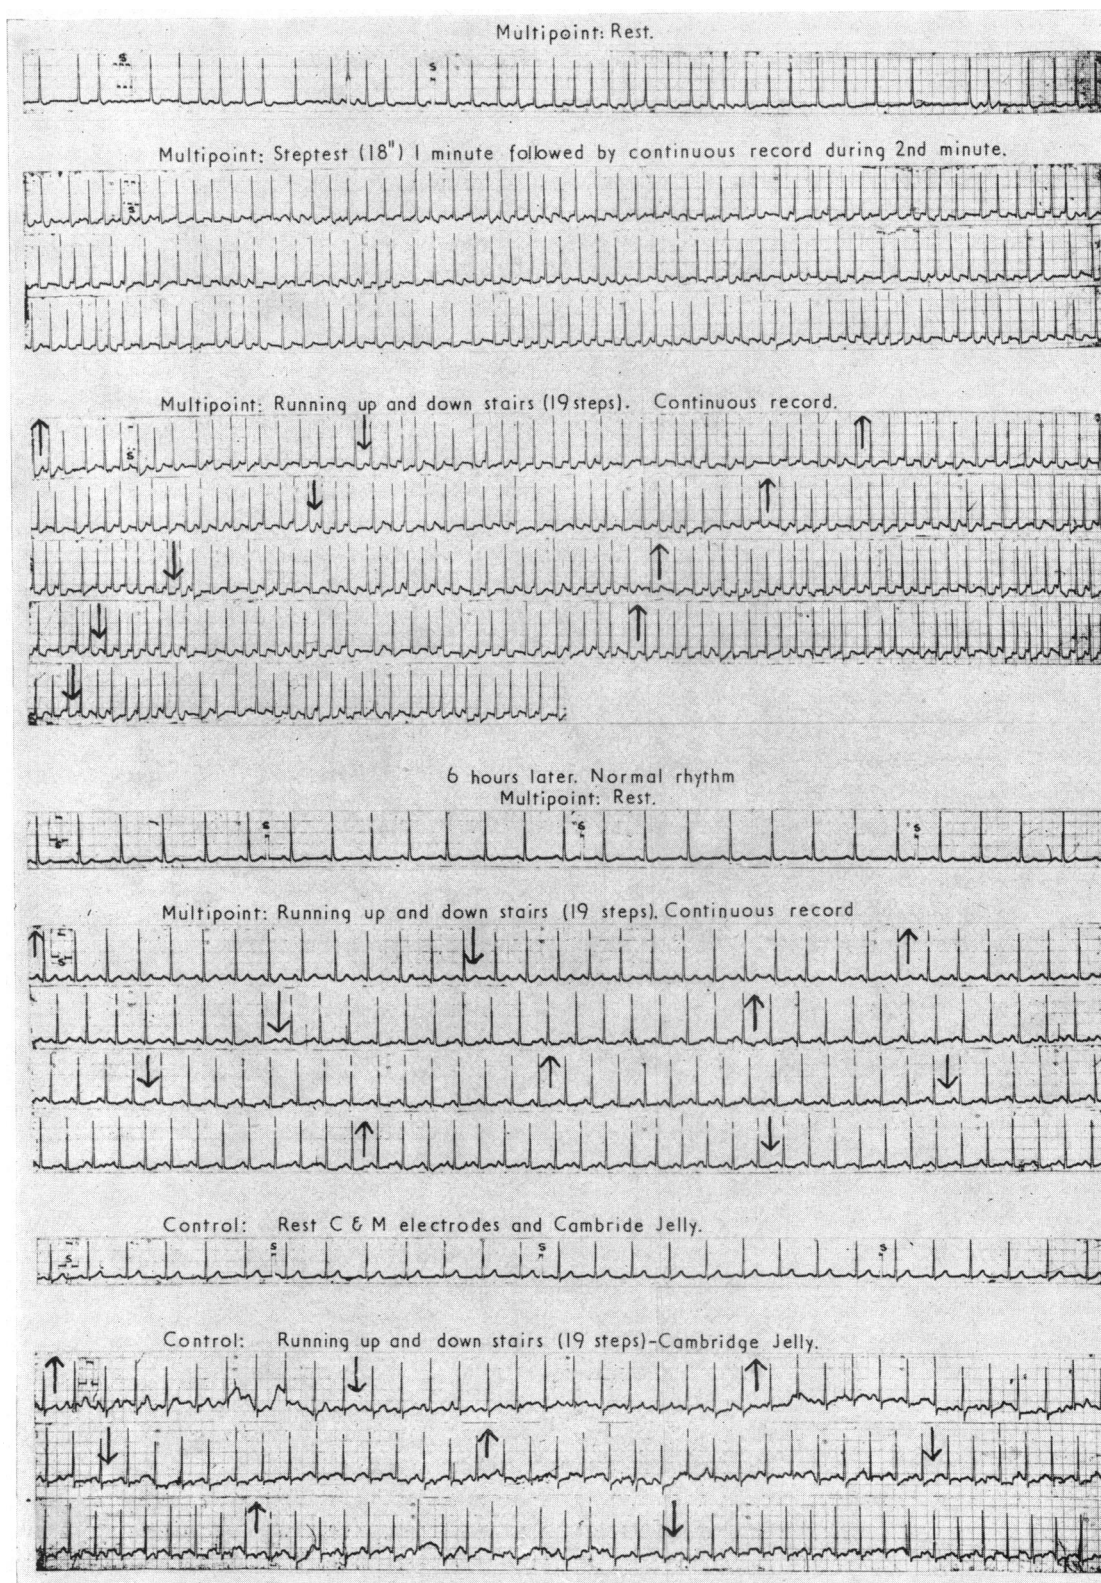 Multipoint: Rest.
S
S
Multipoint: Steptest (18") 1 minute followed by continuous record during 2nd minute.
S
Multipoint: Running up and down stairs (19 steps). Continuous record.
S
6 hours later. Normal rhythm
Multipoint: Rest.
S
S
S
S
Multipoint: Running up and down stairs (19 steps). Continuous record
S
Control: Rest C & M electrodes and Cambride Jelly.
S
S
S
S
Control: Running up and down stairs (19 steps)-Cambridge Jelly.